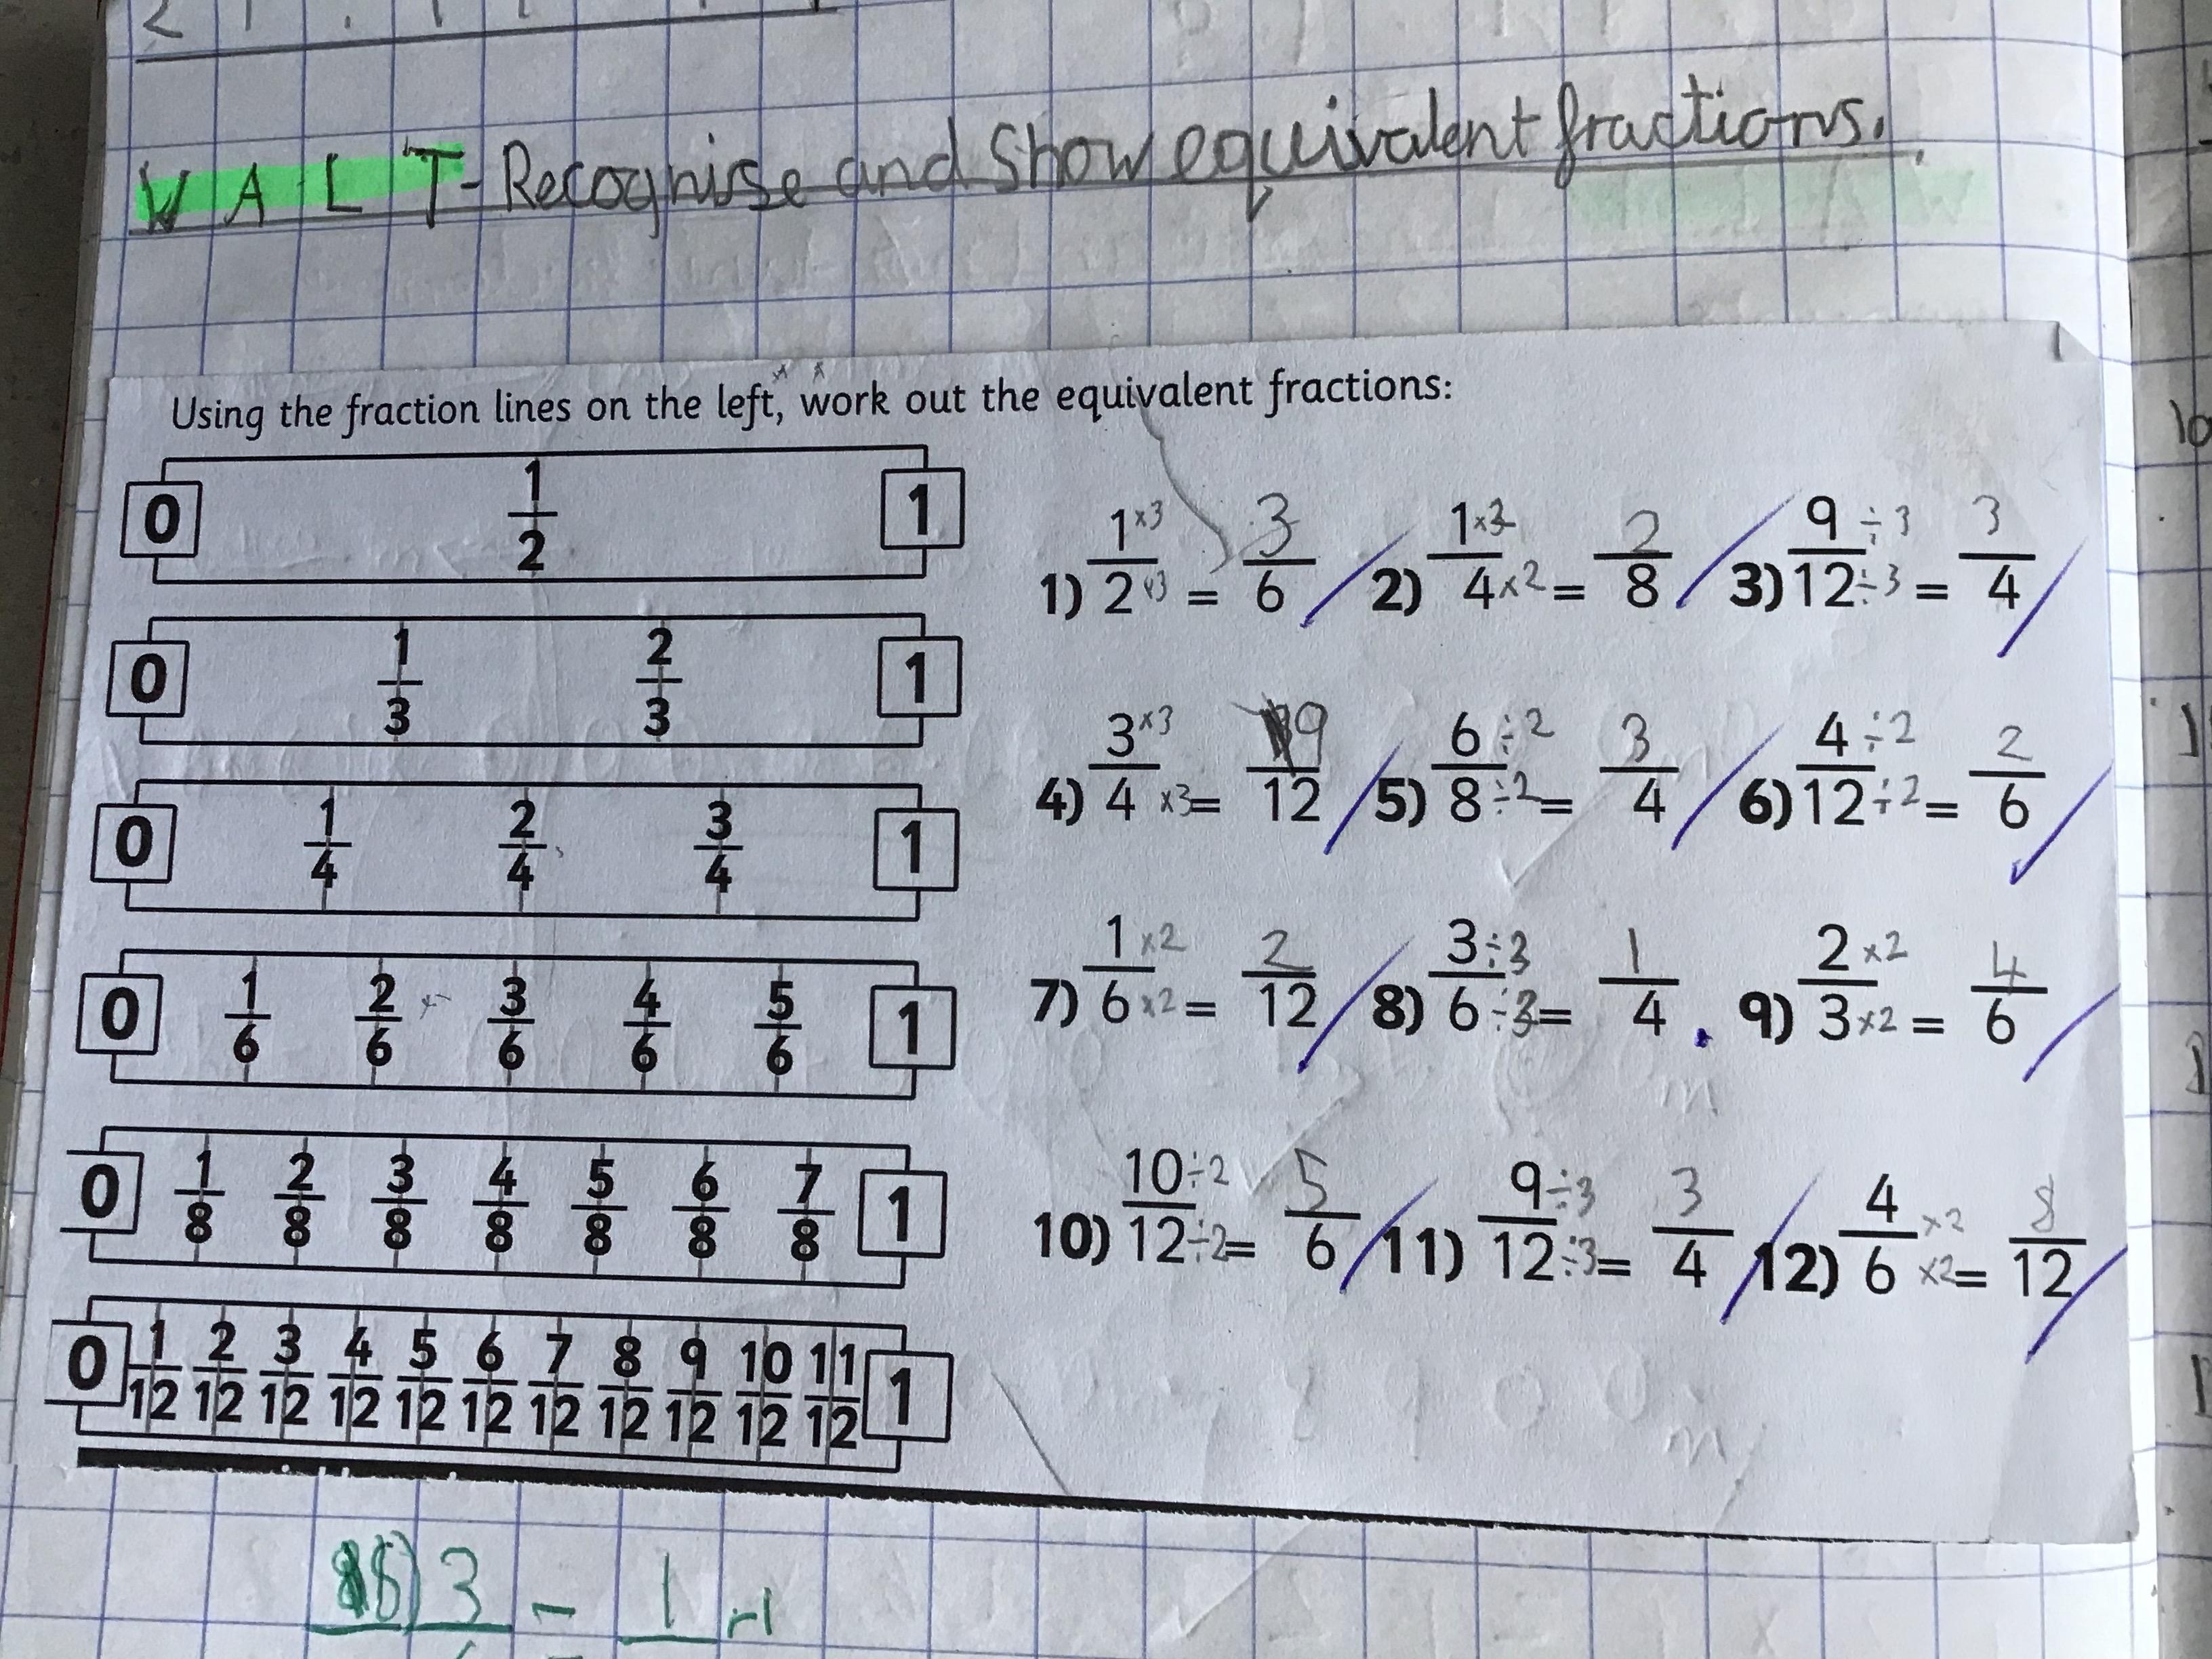 W A L T - Recognise and Show equivalent fractions.
Using the fraction lines on the left, work out the equivalent fractions:
0 1/2 1
0 1/3 2/3 1
0 1/4 2/4 3/4 1
0 1/6 2/6 3/6 4/6 5/6 1
0 1/8 2/8 3/8 4/8 5/8 6/8 7/8 1
0 1/12 2/12 3/12 4/12 5/12 6/12 7/12 8/12 9/12 10/12 11/12 1
1) 1 ×3 / 2 ×3 = 3/6
2) 1 ×2 / 4 ×2 = 2/8
3) 9 ÷3 / 12 ÷3 = 3/4
4) 3 ×3 / 4 ×3 = 9/12
5) 6 ÷2 / 8 ÷2 = 3/4
6) 4 ÷2 / 12 ÷2 = 2/6
7) 1 ×2 / 6 ×2 = 2/12
8) 3 ÷3 / 6 ÷3 = 1/4
9) 2 ×2 / 3 ×2 = 4/6
10) 10 ÷2 / 12 ÷2 = 5/6
11) 9 ÷3 / 12 ÷3 = 3/4
12) 4 ×2 / 6 ×2 = 8/12
3 = 1